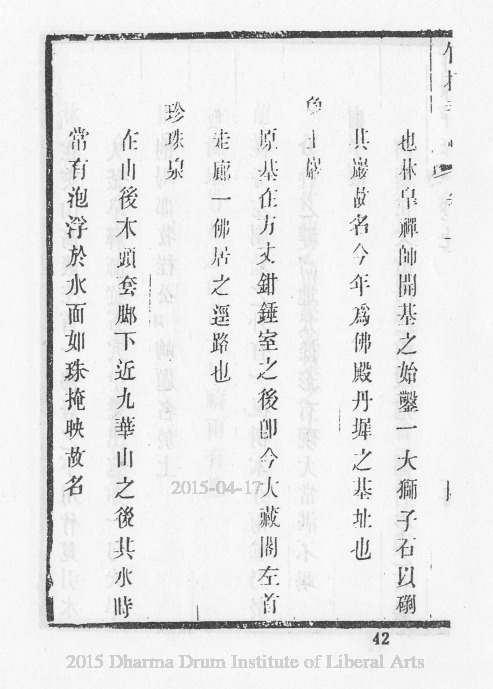 也林臯禪師開基之始鑿一大獅子石以礀
其巖故名今年爲佛殿丹墀之基址也
象王巖
原基在方丈鉗錘室之後卽今大藏閣左首
走廊一佛居之逕路也
珍珠泉
在山後木頭套脚下近九華山之後其水時
常有泡浮於水面如珠掩映故名
42
2015-04-17
2015 Dharma Drum Institute of Liberal Arts